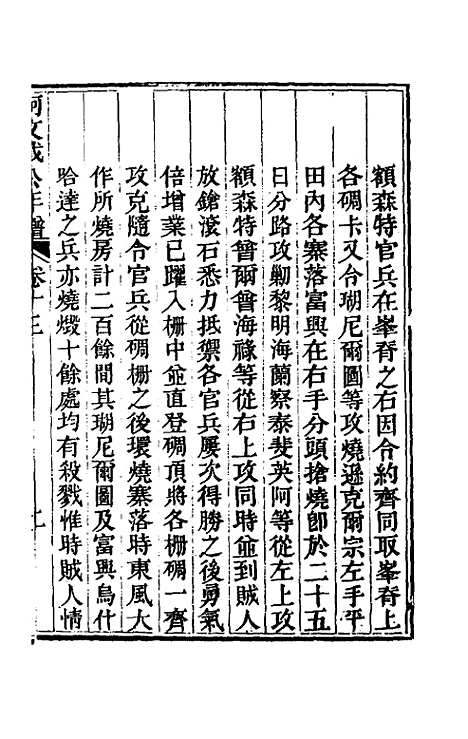 額森特官兵在峯脊之右因令約齊同取峯脊上
各碉卡又令瑚尼爾圖等攻燒遜克爾宗左手平
田內各寨落富興在右手分頭搶燒卽於二十五
日分路攻勦黎明海蘭察泰斐英阿等從左上攻
額森特普爾普海祿等從右上攻同時並到賊人
放鎗滾石悉力抵禦各官兵屢次得勝之後勇氣
倍增業已躍入柵中並直登碉頂將各柵碉一齊
攻克隨令官兵從碉柵之後環燒寨落時東風大
作所燒房計二百餘間其瑚尼爾圖及富興烏什
哈達之兵亦燒燬十餘處均有殺戮惟時賊人情
阿文成公年譜
卷十三